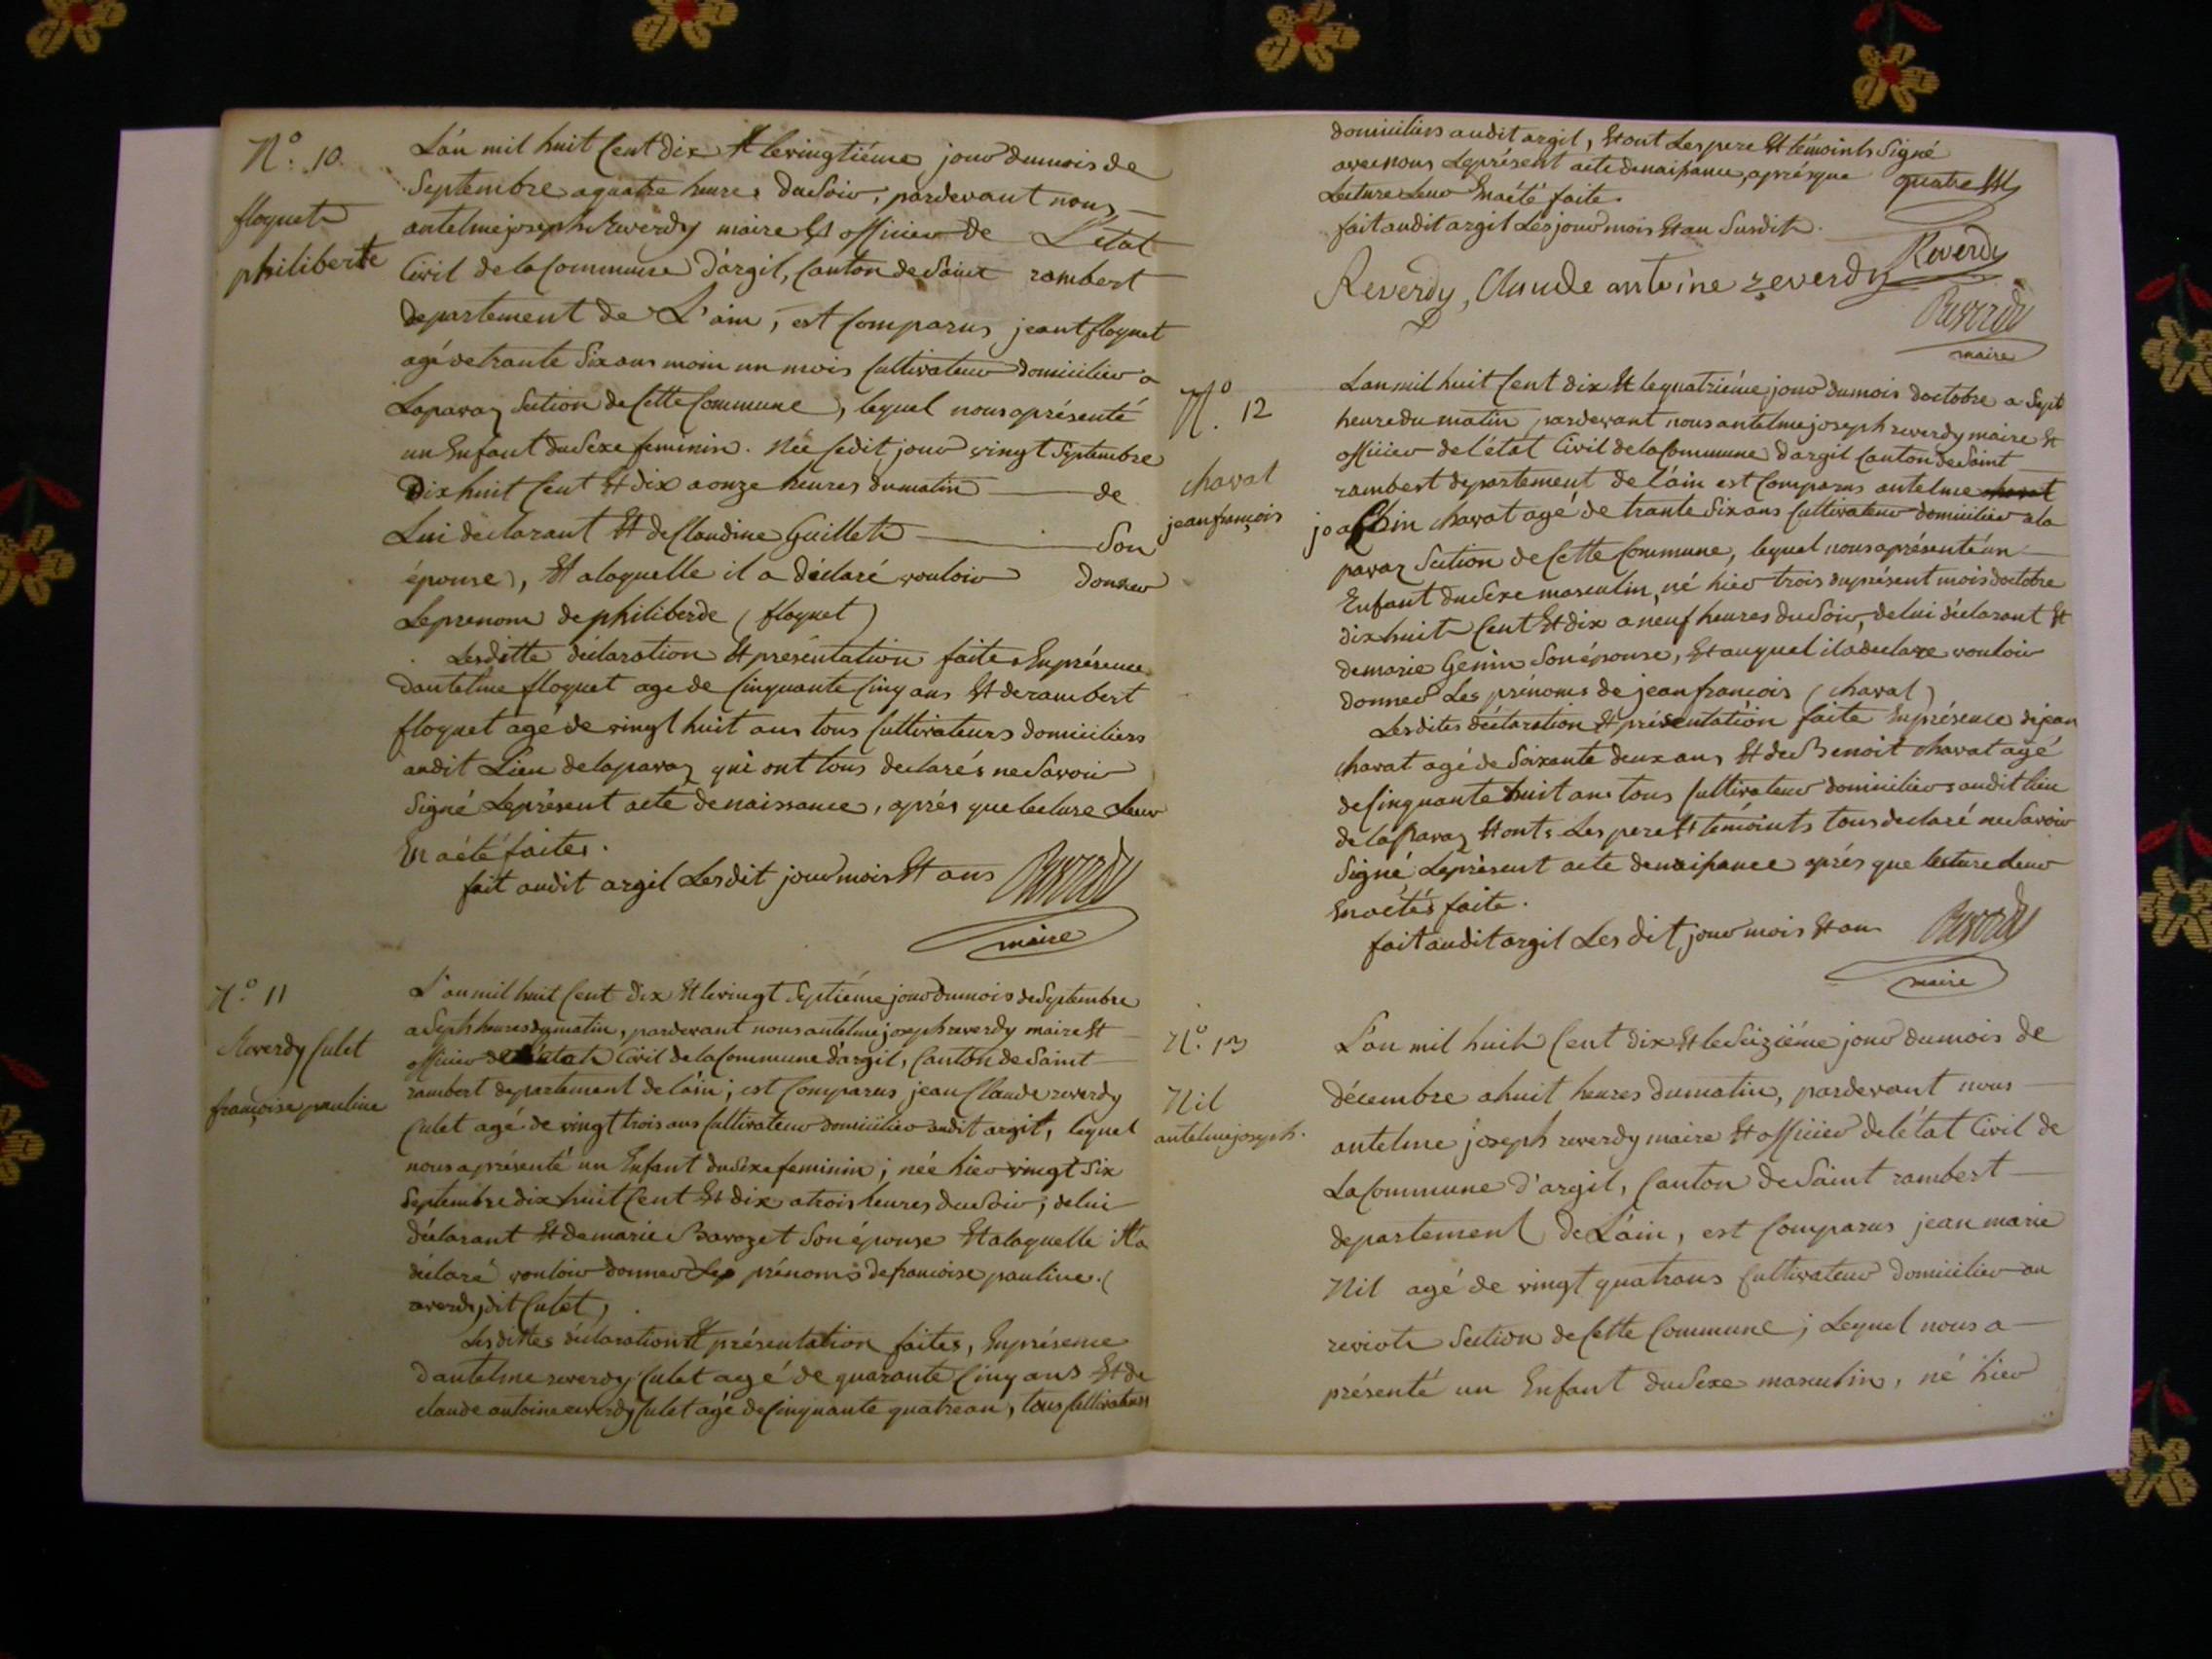 N.º 10.
floquet
philiberte
L'an mil huit Cent dix Et le vingtiéme jour du mois de
Septembre a quatre heures du Soir, pardevant nous
antelme joseph Reverdy maire Et officier de L'état
Civil de la Commune d'argil, Canton de Saint rambert
departement de L'ain, est Comparus jeant floquet
agé de trante Six ans moin un mois Cultivateur domicilier a
Laparaz Section de Cette Commune, lequel nous a présenté
un Enfant du Sexe feminin. Née Cedit jour vingt Septembre
Dix huit Cent Et dix a onze heures du matin de
Lui declarant Et de Claudine Guillet Son
épouse, Et a laquelle il a déclaré vouloir donner
Le prenom de philiberde (floquet)
Lesditte déclaration Et présentation faites En présence
dantelme floquet age de Cinquante Cinq ans Et de rambert
floquet agé de vingt huit ans tous Cultivateurs domiciliers
audit Lieu de laparaz qui ont tous declarés ne Savoir
Signé Le présent acte de naissance, aprés que lecture Leur
En a été faites.
fait audit argil Lesdit jour mois Et ans Reverdy
maire
N.º 11
Reverdy Culet
françoise pauline
L'an mil huit Cent dix Et le vingt Septiéme jour du mois de Septembre
a Sept heures du matin, pardevant nous antelme joseph reverdy maire Et
officier de L'état Civil de la Commune d'argil, Canton de Saint
rambert departement de láin; est Comparus jean Claude reverdy
Culet agé de vingt trois ans Cultivateur domicilier audit argil, lequel
nous a présenté un Enfant du Sexe feminin; née hier vingt Six
Septembre dix huit Cent Et dix a trois heures du Soir; de lui
déclarant Et de marie Bavozet Son épouse Et a laquelle il a
déclaré vouloir donner Les prénoms de francoise pauline. (
reverdy dit Culet)
Lesdittes déclaration Et présentation faites, En présence
dantelme reverdy Culet agé de quarante Cinq ans Et de
claude antoine reverdy Culet agé de Cinquante quatre an, tous Cultivateurs
domiciliers audit argil, Et ont Les pere Et témoints Signé
avec nous Le présent acte de naissance, aprés que
Lecture Leur En a été faite.
fait audit argil Les jour mois Et an Susdit.
Reverdy, Claude antoine reverdy Reverdy
Reverdy
maire
N.º 12
chavat
jean françois
L'an mil huit Cent dix Et le quatriéme jour du mois doctobre a Sept
heure du matin pardevant nous antelme joseph reverdy maire Et
officier de l'état Civil de la Commune d'argil Canton de Saint
rambert departement de l'áin est Comparus antelme chavat
joaChin chavat agé de trante Six ans Cultivateur domicilier a la
paraz Section de Cette Commune, lequel nous a présenté un
Enfant du Sexe masculin, né hier trois du présent mois doctobre
dix huit Cent Et dix a neuf heures du Soir, de lui déclarant Et
de marie Genin Son épouse, Et auquel il a declare vouloir
donner Les prénoms de jean francois (chavat)
Lesdites déclaration Et présentation faite En présence de jean
chavat agé de Soixante deux ans Et de Benoit chavat agé
de Cinquante huit ans tous Cultivateur domiciliers audit lieu
de la paraz Et onts Les pere Et témoints tous declaré ne Savoir
Signé Le présent acte de naissance aprés que lecture Leur
En a étés faite.
fait audit argil Les dit jour mois Et an Reverdy
maire
N.º 13
Nil
antelme joseph.
L'an mil huit Cent dix Et le Seiziéme jour du mois de
décembre a huit heures du matin, pardevant nous
antelme joseph reverdy maire Et officier de l'état Civil de
La Commune d'argil, Canton de Saint rambert
departement de Láin, est Comparus jean marie
Nil agé de vingt quatrans Cultivateur domicilier au
reviot Section de Cette Commune; Lequel nous a
présenté un Enfant du Sexe masculin, né hier